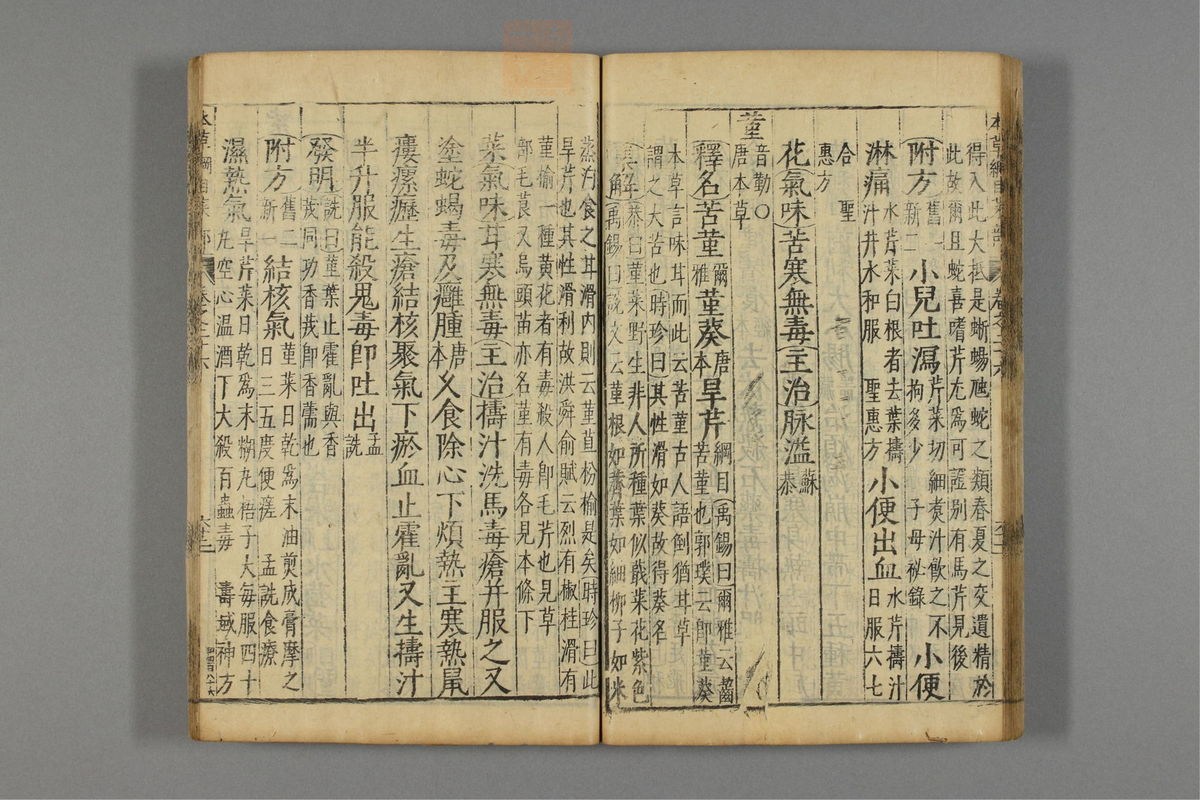 本草綱目菜部 卷之二十六
得入此大抵是蜥蜴虺蛇之類春夏之交遺精於
此故爾且蛇喜嗜芹尤爲可證別有馬芹見後
附方舊一新二 小兒吐瀉芹菜切細煮汁飲之不拘多少 子母祕錄 小便
淋痛水芹菜白根者去葉擣汁井水和服 聖惠方 小便出血水芹擣汁日服六七
合 聖惠方
花氣味苦寒無毒主治脉溢蘇恭
堇音勤○唐本草
釋名苦堇爾雅堇葵唐本旱芹綱目禹錫曰爾雅云齧苦堇也郭璞云卽堇葵
本草言味甘而此云苦堇古人語倒猶甘草
謂之大苦也時珍曰其性滑如葵故得葵名
集解恭曰堇菜野生非人所種葉似蕺菜花紫色
禹錫曰說文云堇根如薺葉如細柳子如米
蒸汋食之甘滑内則云堇荁枌榆是矣時珍曰此
旱芹也其性滑利故洪舜俞賦云烈有椒桂滑有
堇榆一種黃花者有毒殺人卽毛芹也見草
部毛茛又烏頭苗亦名堇有毒各見本條下
菜氣味甘寒無毒主治擣汁洗馬毒瘡并服之又
塗蛇蝎毒及癰腫唐本久食除心下煩熱主寒熱鼠
瘻瘰癧生瘡結核聚氣下瘀血止霍亂又生擣汁
半升服能殺鬼毒卽吐出孟詵
發明詵曰堇葉止霍亂與香茙同功香茙卽香薷也
附方舊二新一 結核氣堇菜日乾爲末油煎成膏摩之日三五度便瘥 孟詵食療
濕熱氣旱芹菜日乾爲末糊丸梧子大每服四十丸空心溫酒下大殺百蟲毒 壽域神方
本草綱目菜部 卷之二十六